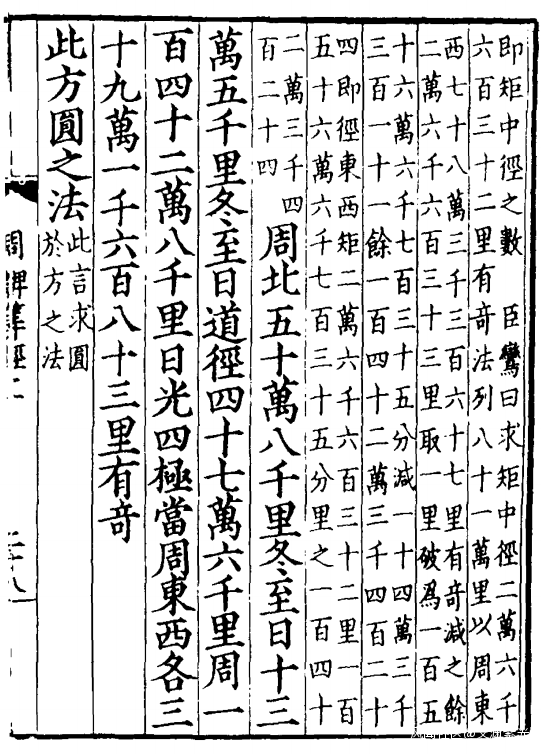 即矩中徑之數　臣鸞曰求矩中徑二萬六千
六百三十二里有奇法列八十一萬里以周東
西七十八萬三千三百六十七里有奇減之餘
二萬六千六百三十三里取一里破爲一百五
十六萬六千七百三十五分減一十四萬三千
三百一十一餘一百四十二萬三千四百二十
四即徑東西矩二萬六千六百三十二里一百
五十六萬六千七百三十五分里之一百四十
二萬三千四
百二十四
周北五十萬八千里冬至日十三
萬五千里冬至日道徑四十七萬六千里周一
百四十二萬八千里日光四極當周東西各三
十九萬一千六百八十三里有奇
此方圓之法
此言求圓
於方之法
周髀算經二